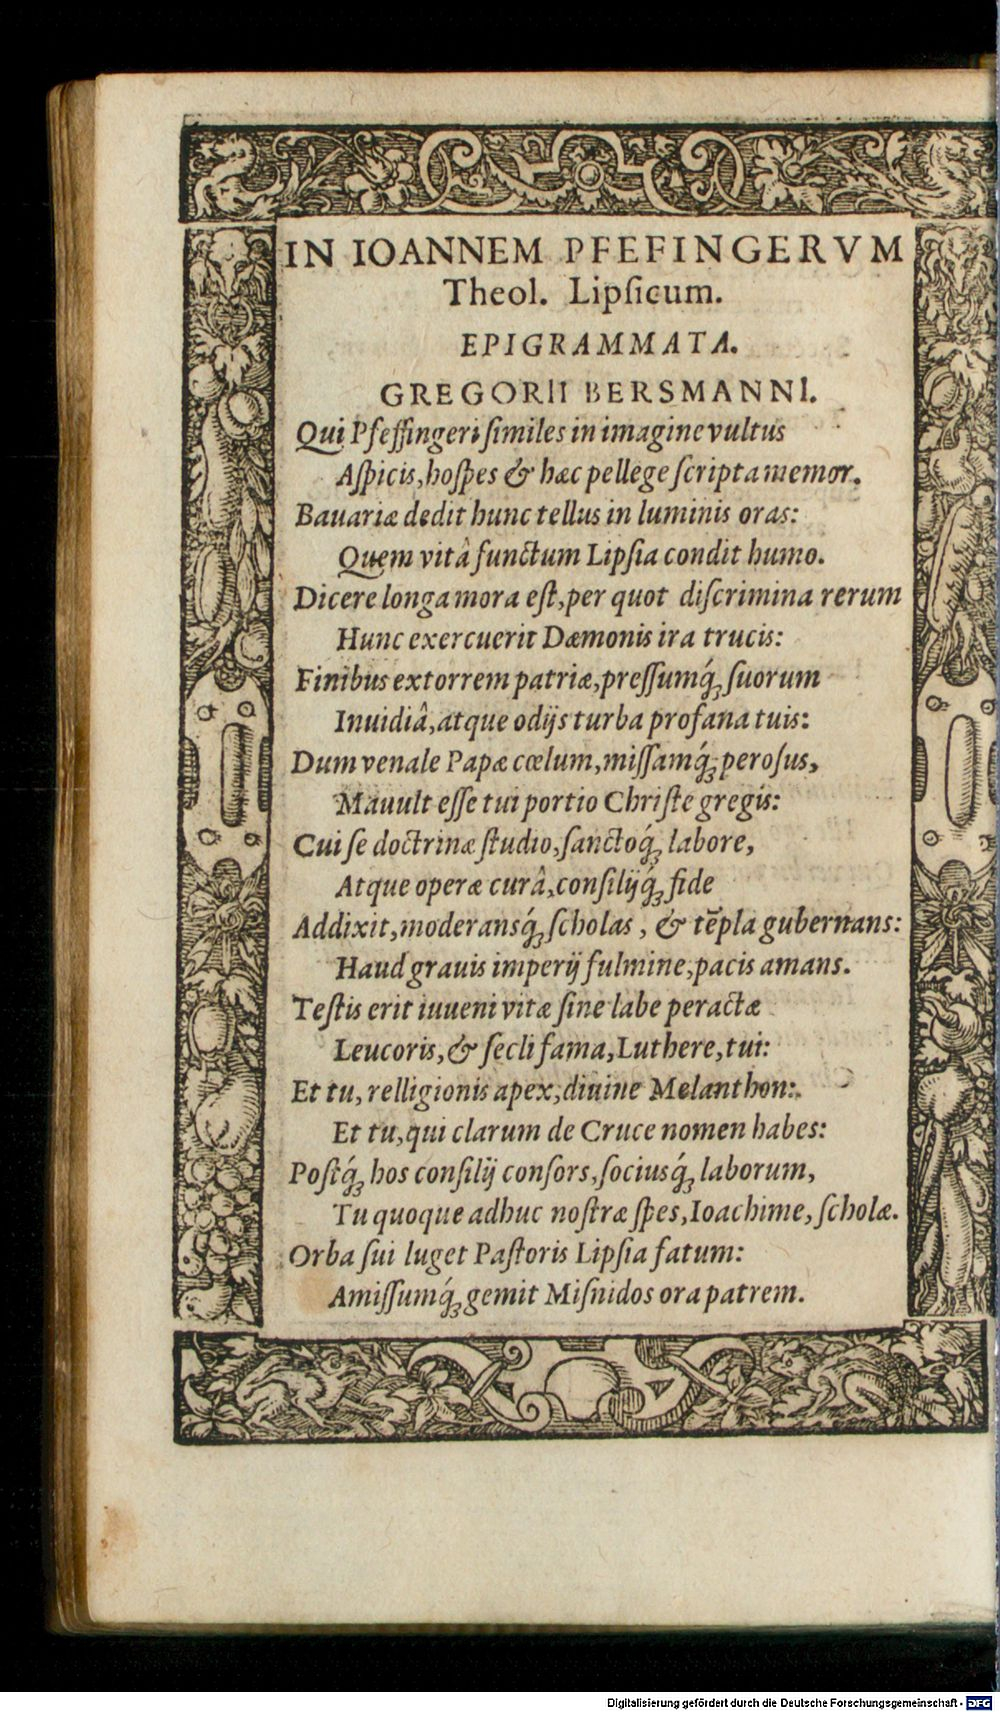 IN IOANNEM PFEFINGERVM
Theol. Lipſicum.
EPIGRAMMATA.
GREGORII BERSMANNI.
Qui Pfeffingeri ſimiles in imagine vultus
Aſpicis, hoſpes & hæc pellege ſcripta memor.
Bauariæ dedit hunc tellus in luminis oras:
Quem vitâ functum Lipſia condit humo.
Dicere longa mora eſt, per quot diſcrimina rerum
Hunc exercuerit Dæmonis ira trucis:
Finibus extorrem patriæ, preſſumq́ꝫ ſuorum
Inuidiâ, atque odijs turba profana tuis:
Dum venale Papæ cœlum, miſſamq́ꝫ peroſus,
Mauult eſſe tui portio Chriſte gregis:
Cui ſe doctrinæ ſtudio, ſanctoq́ꝫ labore,
Atque operæ curâ, conſilijq́ꝫ fide
Addixit, moderansq́ꝫ ſcholas, & tēpla gubernans:
Haud grauis imperij fulmine, pacis amans.
Teſtis erit iuueni vitæ ſine labe peractæ
Leucoris, & ſecli fama, Luthere, tui:
Et tu, relligionis apex, diuine Melanthon:
Et tu, qui clarum de Cruce nomen habes:
Poſtq́ꝫ hos conſilij conſors, ſociusq́ꝫ laborum,
Tu quoque adhuc noſtræ ſpes, Ioachime, ſcholæ.
Orba ſui luget Paſtoris Lipſia fatum:
Amiſſumq́ꝫ gemit Miſnidos ora patrem.
Digitalisierung gefördert durch die Deutsche Forschungsgemeinschaft - DFG